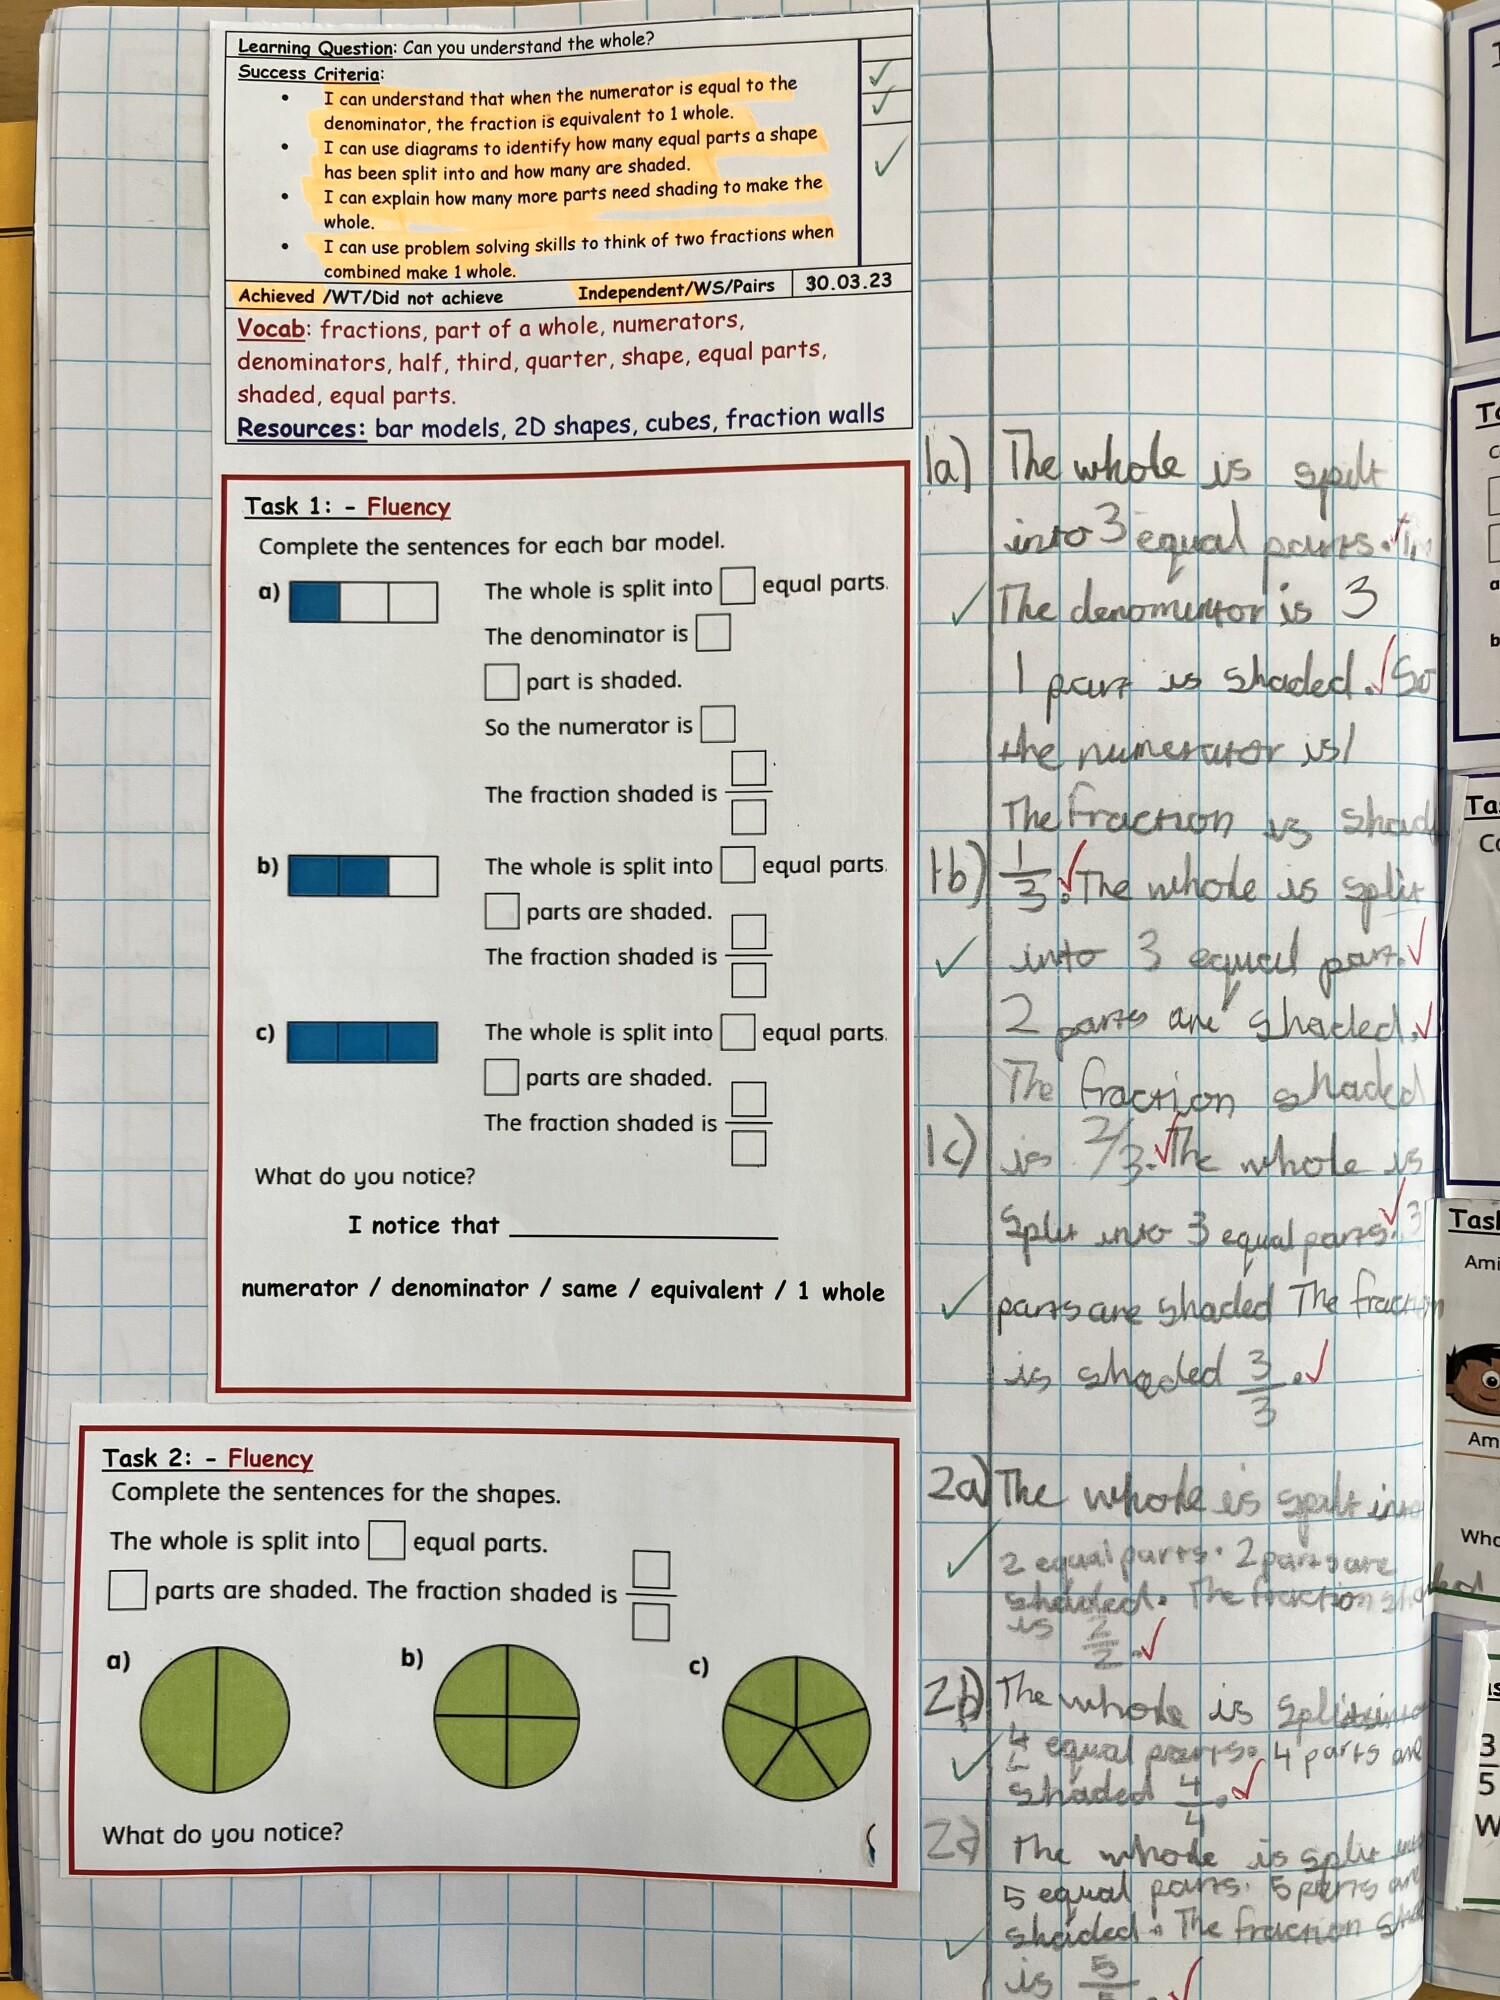 Learning Question: Can you understand the whole?
Success Criteria:
• I can understand that when the numerator is equal to the
denominator, the fraction is equivalent to 1 whole.
• I can use diagrams to identify how many equal parts a shape
has been split into and how many are shaded.
• I can explain how many more parts need shading to make the
whole.
• I can use problem solving skills to think of two fractions when
combined make 1 whole.
Achieved /WT/Did not achieve Independent/WS/Pairs 30.03.23
Vocab: fractions, part of a whole, numerators,
denominators, half, third, quarter, shape, equal parts,
shaded, equal parts.
Resources: bar models, 2D shapes, cubes, fraction walls
Task 1: - Fluency
Complete the sentences for each bar model.
a) The whole is split into equal parts.
The denominator is
part is shaded.
So the numerator is
The fraction shaded is
b) The whole is split into equal parts.
parts are shaded.
The fraction shaded is
c) The whole is split into equal parts.
parts are shaded.
The fraction shaded is
What do you notice?
I notice that
numerator / denominator / same / equivalent / 1 whole
Task 2: - Fluency
Complete the sentences for the shapes.
The whole is split into equal parts.
parts are shaded. The fraction shaded is
a) b) c)
What do you notice?
1a) The whole is spilt
into 3 equal parts.
The denomintor is 3
1 part is shaded. So
the numerator is 1
The fraction is shad
1b) 1/3. The whole is split
into 3 equal part.
2 parts are shaded.
The fraction shaded
1c) is 2/3. The whole is
Split into 3 equal parts. 3
parts are shaded The fraction
is shaded 3/3.
2a) The whole is spilt into
2 equal parts. 2 parts are
shaded. The fraction shaded
is 2/2.
2b) The whole is split into
4 equal parts. 4 parts are
shaded 4/4.
The whole is split into
5 equal parts. 5 parts are
shaded. The fraction
is 5/5.
Task
Ami
Am
Who
3
5
W